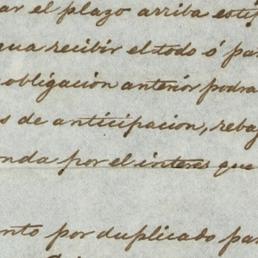 ar el plazo arriba estip
gua recibir el todo ó par
obligación anterior podra
s de anticipacion, reba
nda por el interes que
nto por duplicado pa